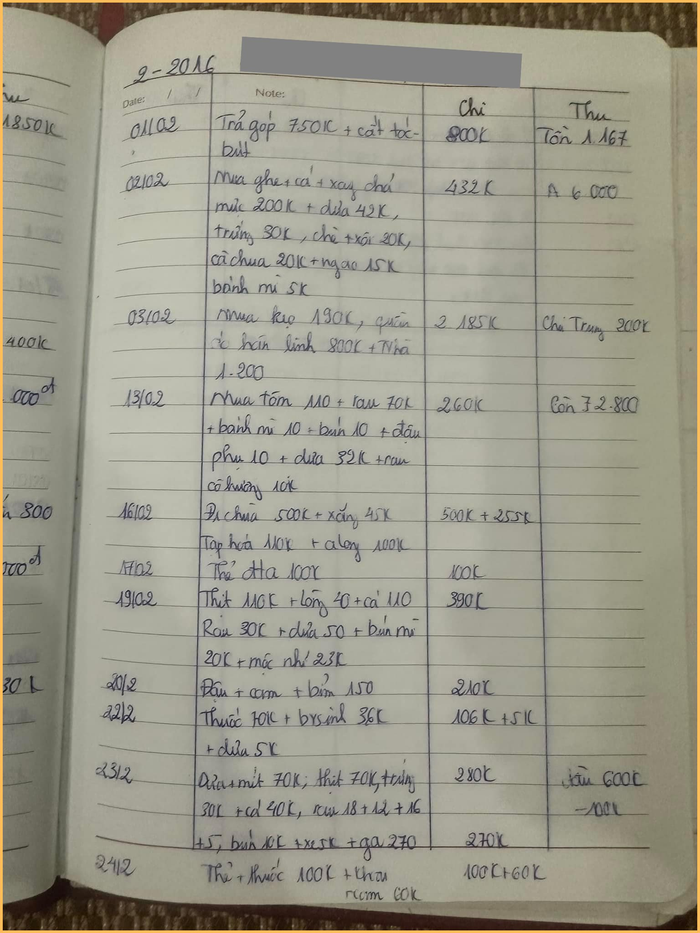 1850K
400K
000đ
800
000đ
30K
2-2016
Date: / / Note: Chi Thu
01/02 Trả góp 750K + cắt tóc 800K Tồn 1.167
bút
02/02 Mua ghẹ + cá + xay chả 432K A 6 000
mực 200K + dứa 42K,
trứng 30K, chè + xôi 20K,
cà chua 20K + ngao 15K
bánh mì 5K
03/02 Mua kẹo 190K, quần 2 185K Chị Trung 200K
áo hán linh 800K + Nhã
1.200
13/02 Mua tôm 110 + rau 70K 260K Còn 72.800
+ bánh mì 10 + bún 10 + đậu
phụ 10 + dứa 32K + rau
cô hương 10K
16/02 Đi chùa 500K + xăng 45K 500K + 255K
Tạp hoá 110K + along 100K
17/02 Thẻ Ha 100K 100K
19/02 Thịt 110K + lòng 40 + cá 110 390K
Rau 30K + dứa 50 + bún mì
20K + mộc nhĩ 23K
20/2 Đậu + cam + bỉm 150 210K
22/2 Thuốc 70K + 36K 106K + 5K
+ dứa 5K
23/2 Dứa + mít 70K; thịt 70K, trứng 280K 600K
30K + cá 40K, rau 18 + 12 + 16 -100K
+5, bún 10K + xe 5K + ga 270 270K
24/2 Thẻ + thuốc 100K + 100K + 60K
60K